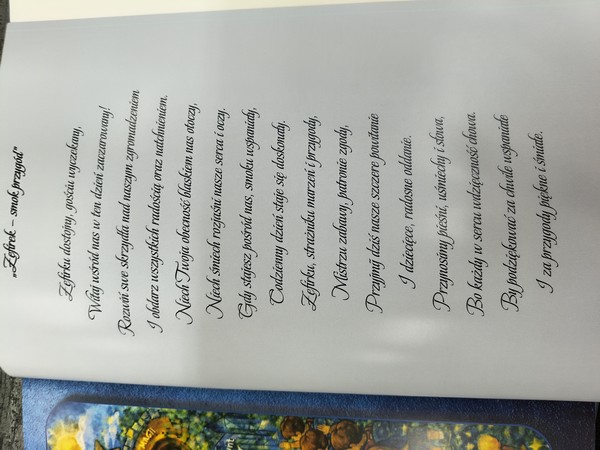 „Zefirek – smok przygód"
Zefirku dostojny, gościu wyczekany,
Witaj wśród nas w ten dzień zaczarowany!
Rozwiń swe skrzydła nad naszym zgromadzeniem
I obdarz wszystkich radością oraz natchnieniem.
Niech Twoja obecność blaskiem nas otoczy,
Niech śmiech rozjaśni nasze serca i oczy.
Gdy stajesz pośród nas, smoku wspaniały,
Codzienny dzień staje się doskonały.
Zefirku, strażniku marzeń i przygody,
Mistrzu zabawy, patronie zgody,
Przyjmij dziś nasze szczere powitanie
I dziecięce, radosne oddanie.
Przynosimy pieśni, uśmiechy i słowa,
Bo każdy w sercu wdzięczność chowa.
By podziękować za chwile wspaniałe
I za przygody piękne i śmiałe.